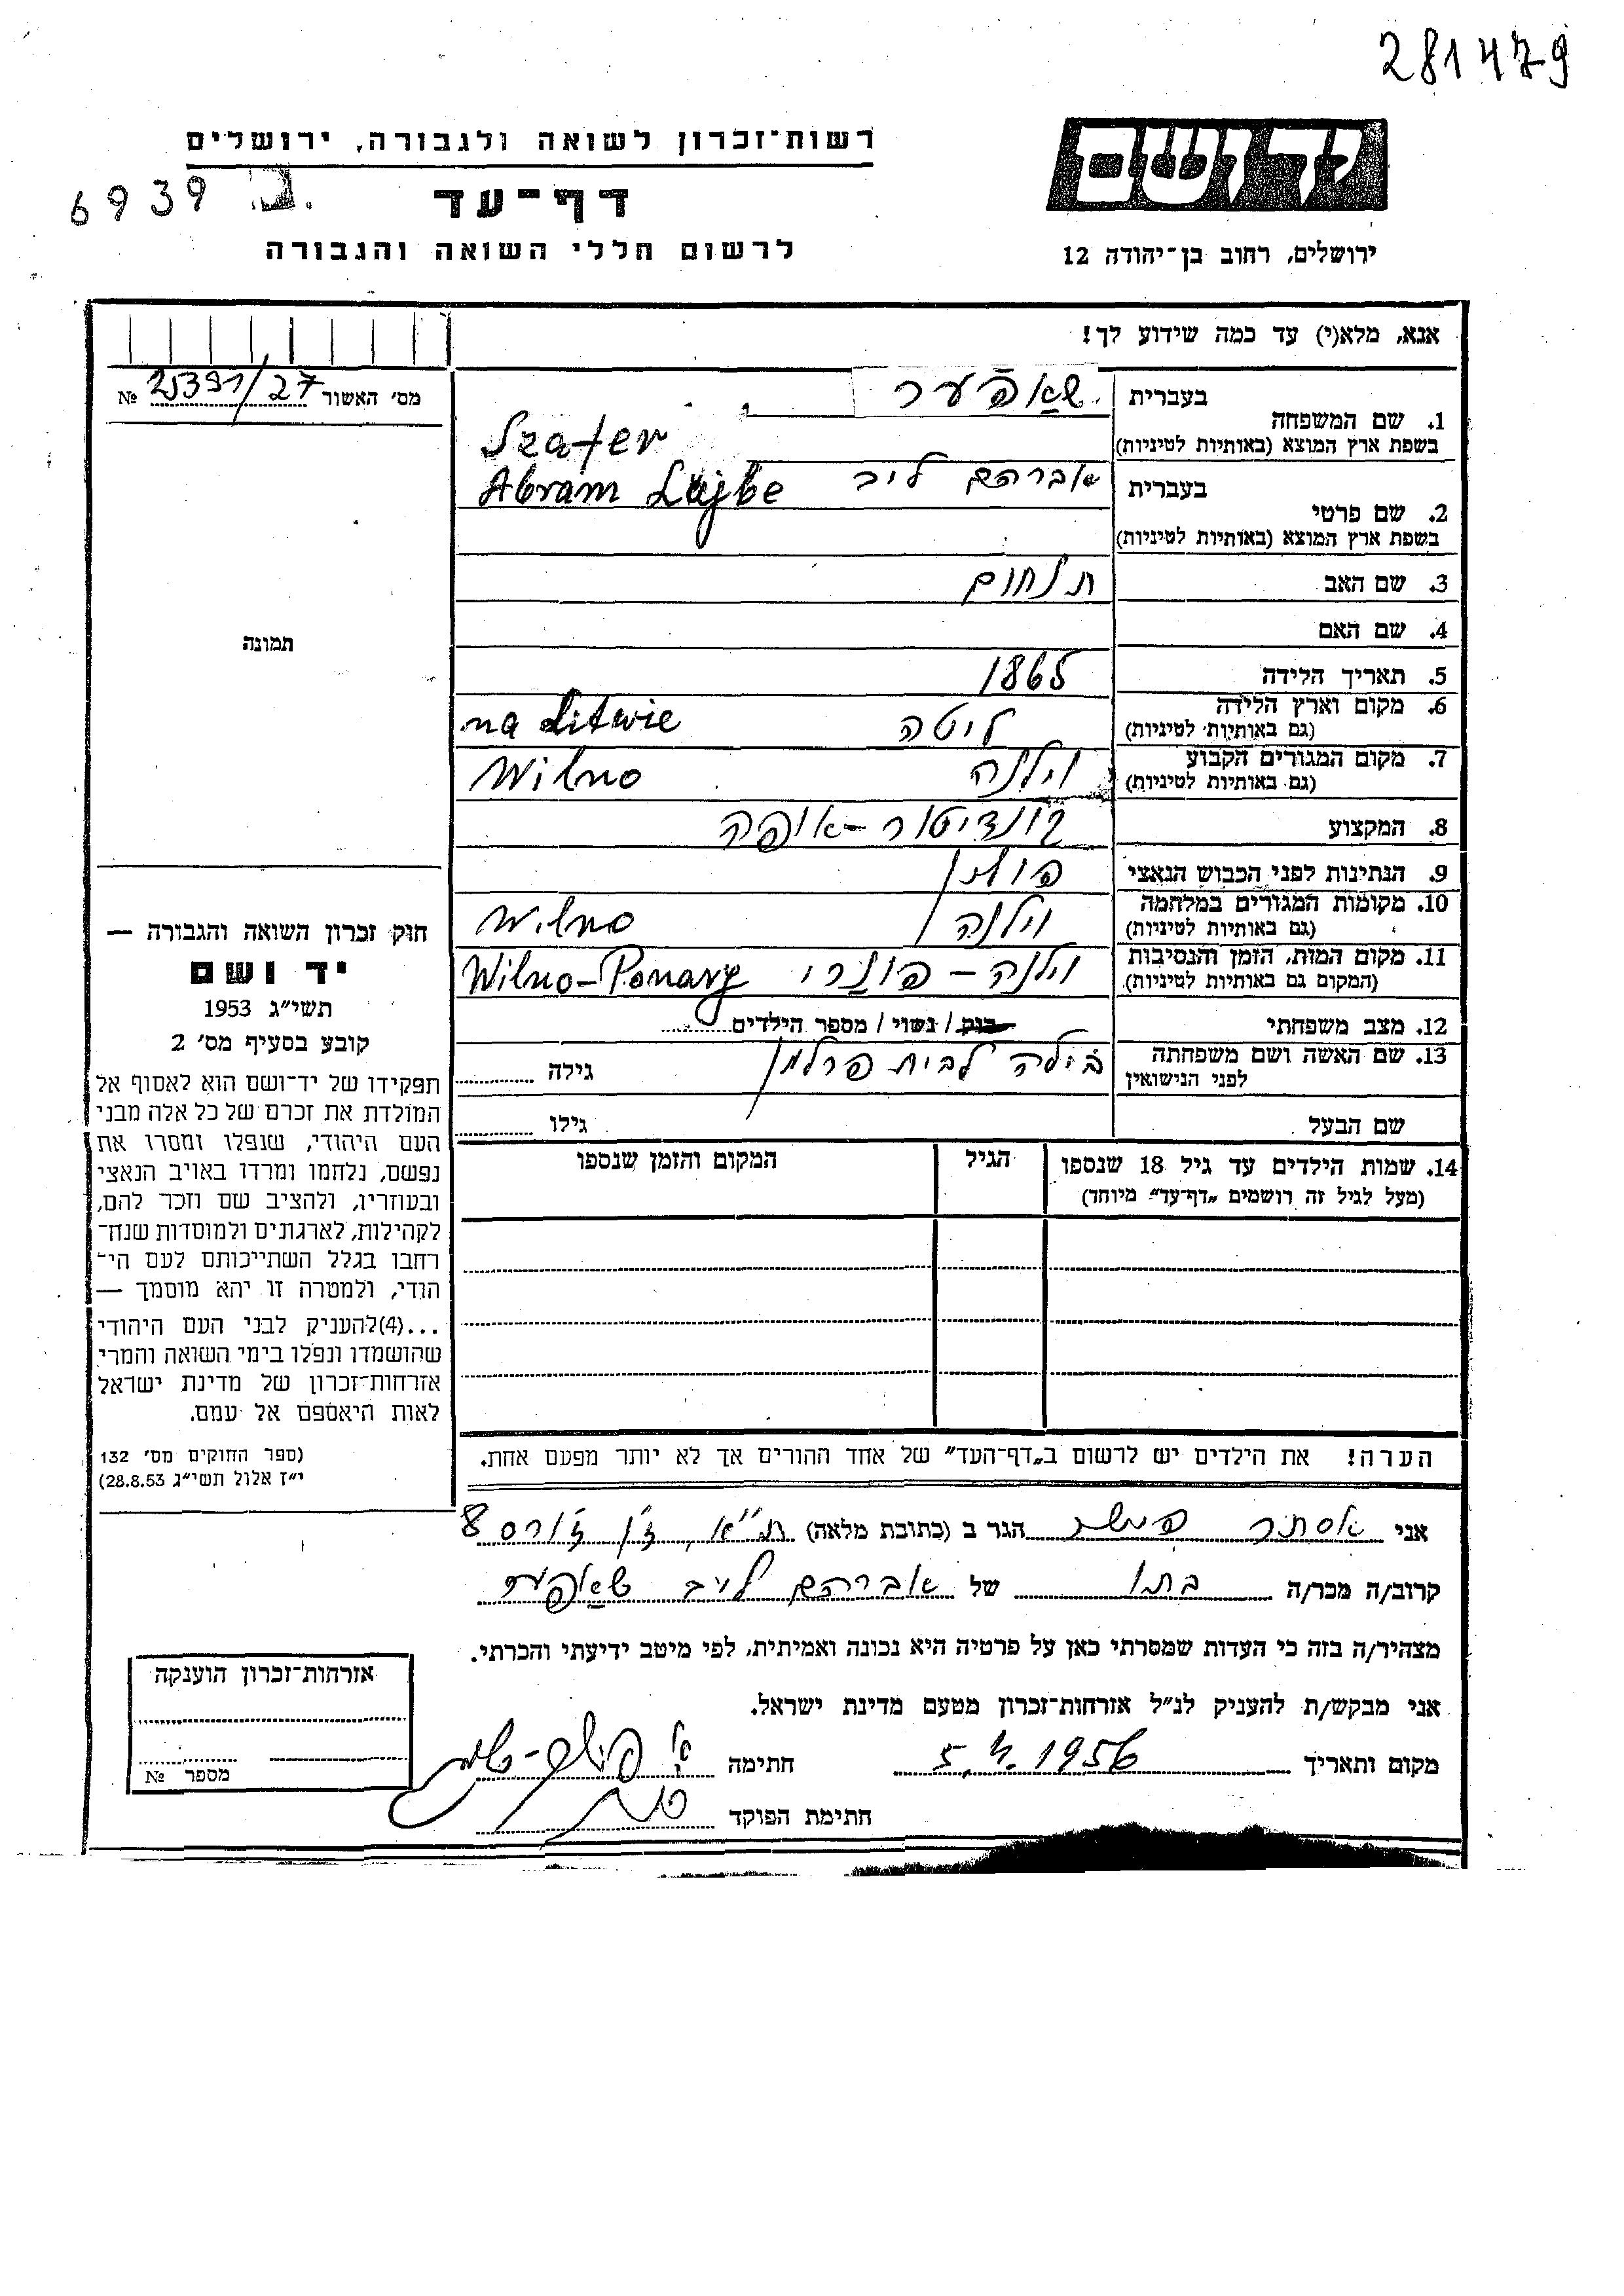 281479
יד ושם
רשות־זכרון לשואה ולגבורה, ירושלים
דף־עד
6939
ירושלים, רחוב בן־יהודה 12
לרשום חללי השואה והגבורה
אנא, מלא(י) עד כמה שידוע לך!
מס׳ האשור 25391/27 №
1. שם המשפחה
בעברית שאַפֿער
בשפת ארץ המוצא (באותיות לטיניות) Szafer
2. שם פרטי
בעברית אברהם ליב
Abram Lejbe
בשפת ארץ המוצא (באותיות לטיניות)
3. שם האב תנחום
4. שם האם
5. תאריך הלידה 1865
6. מקום וארץ הלידה ליטה na Litwie
(גם באותיות לטיניות)
7. מקום המגורים הקבוע וילנה Wilno
(גם באותיות לטיניות)
8. המקצוע קונדיטור - אופה
9. הנתינות לפני הכבוש הנאצי פולין
10. מקומות המגורים במלחמה וילנה Wilno
(גם באותיות לטיניות)
11. מקום המות, הזמן והנסיבות וילנה - פונרי Wilno-Ponary
(המקום גם באותיות לטיניות)
12. מצב משפחתי רווק / נשוי / מספר הילדים
13. שם האשה ושם משפחתה בילה לבית פרלמן גילה
לפני הנישואין
שם הבעל גילו
14. שמות הילדים עד גיל 18 שנספו הגיל המקום והזמן שנספו
(מעל לגיל זה רושמים „דף־עד״ מיוחד)
הערה! את הילדים יש לרשום ב„דף־העד״ של אחד ההורים אך לא יותר מפעם אחת.
תמונה
חוק זכרון השואה והגבורה —
יד ושם
תשי״ג 1953
קובע בסעיף מס׳ 2
תפקידו של יד־ושם הוא לאסוף אל
המולדת את זכרם של כל אלה מבני
העם היהודי, שנפלו ומסרו את
נפשם, נלחמו ומרדו באויב הנאצי
ובעוזריו, ולהציב שם וזכר להם,
לקהילות, לארגונים ולמוסדות שנח־
רחבו בגלל השתייכותם לעם הי־
הודי, ולמטרה זו יהא מוסמך —
...(4)להעניק לבני העם היהודי
שהושמדו ונפלו בימי השואה והמרי
אזרחות־זכרון של מדינת ישראל
לאות היאספם אל עמם.
(ספר החוקים מס׳ 132
י״ז אלול תשי״ג 28.8.53)
אני אסתר הגר ב (כתובת מלאה) ת״א, ז׳ן ז׳ורס 8
קרוב/ה מכר/ה בתו של אברהם לייב שאַפער
מצהיר/ה בזה כי העדות שמסרתי כאן על פרטיה היא נכונה ואמיתית, לפי מיטב ידיעתי והכרתי.
אני מבקש/ת להעניק לנ״ל אזרחות־זכרון מטעם מדינת ישראל.
מקום ותאריך 5.4.1956 חתימה
חתימת הפוקד
אזרחות־זכרון הוענקה
מספר №